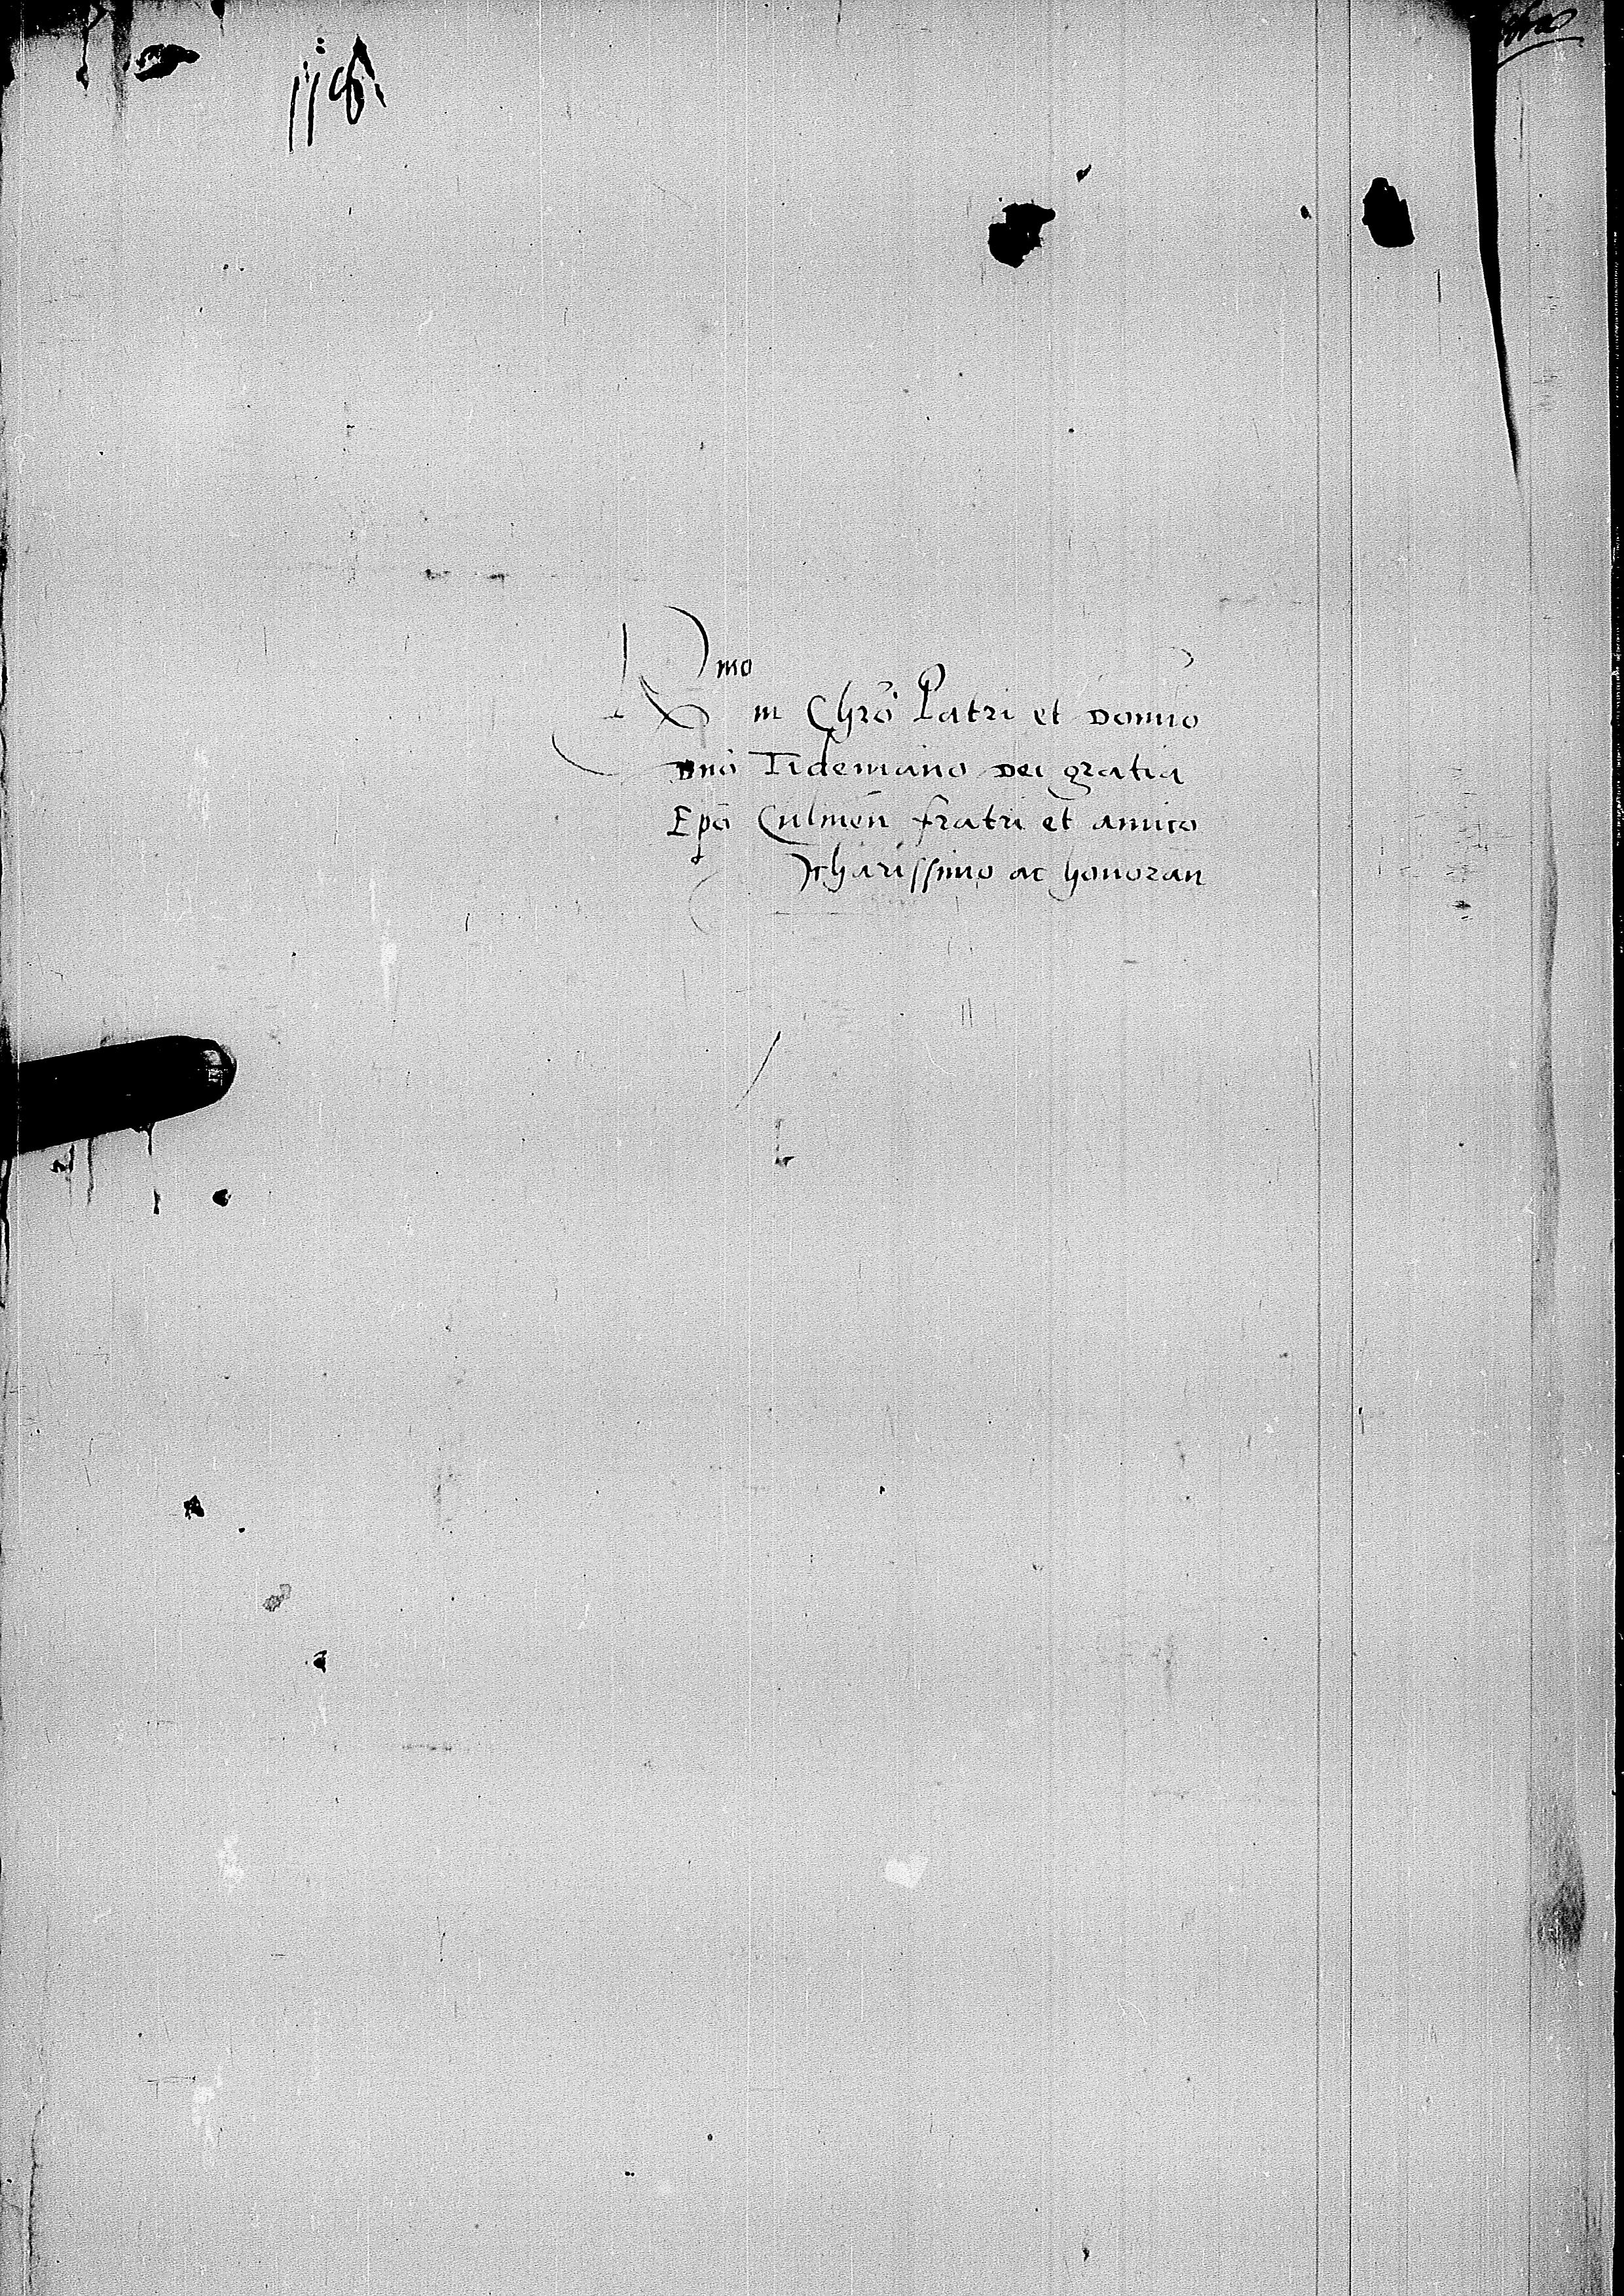 Rmo
in Chrō Patri et Domino
Dnō Tidemano Dei gratia
Epō Culmeñ fratri et amico
charissimo ac honoran